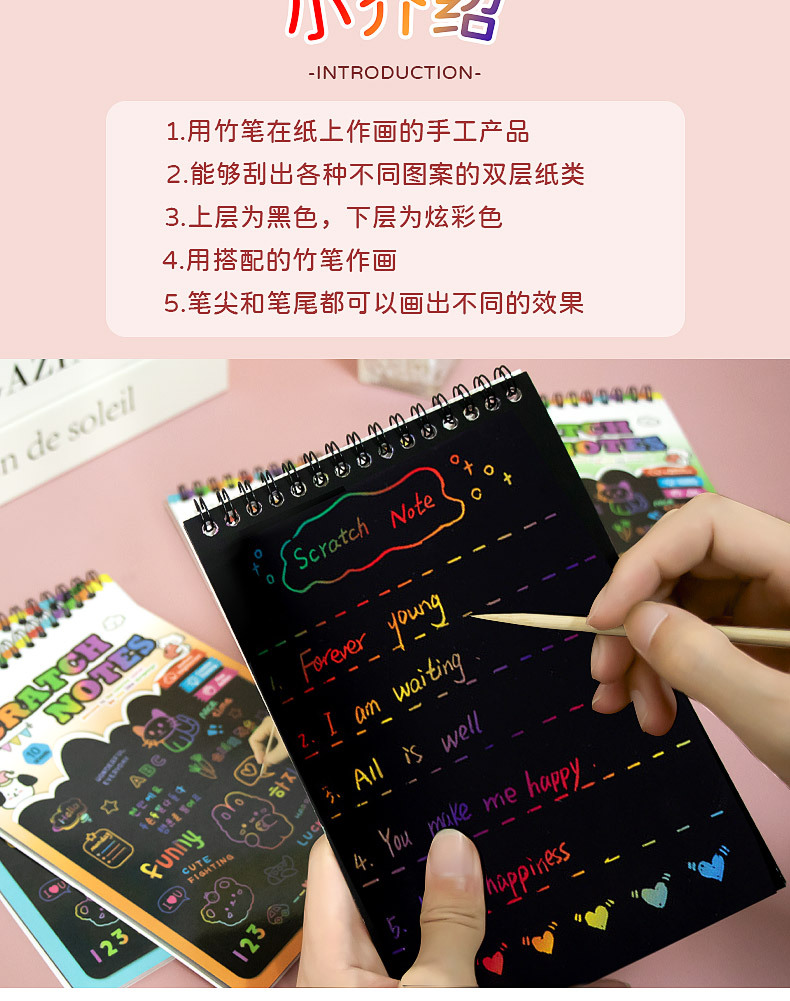 小介绍
-INTRODUCTION-
1.用竹笔在纸上作画的手工产品
2.能够刮出各种不同图案的双层纸类
3.上层为黑色，下层为炫彩色
4.用搭配的竹笔作画
5.笔尖和笔尾都可以画出不同的效果
n de soleil
Scratch Note
1. Forever young
2. I am waiting
3. All is well
4. You make me happy.
5. happiness
NOTES
ABC
Hello
funny
CUTE
FIGHTING
I U
I U
123
123